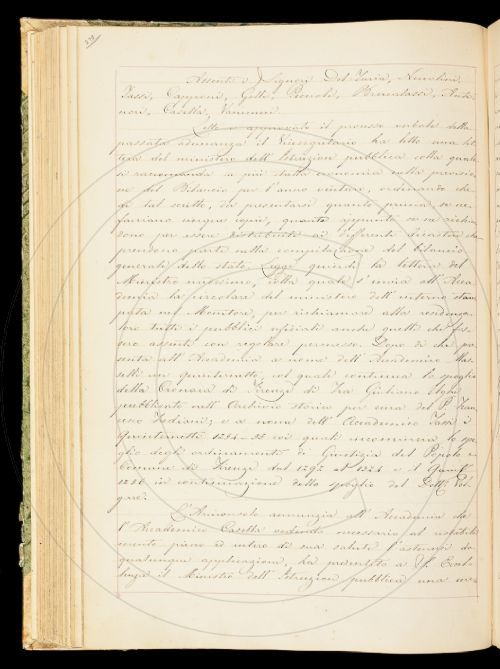 Assenti i Signori Del Furia, Nicolini,
Tassi, Capponi, Gotti, Bencalassi,
Casella, Vannucci.
Letto e approvato il processo verbale della
passata adunanza il Vicesegretario ha letto una let
tera del ministro dell'Istruzion pubblica colla quale
si raccomanda la più stretta economia nella previsio
ne del Bilancio per l'anno venturo, ordinando che
di tal scritta, da presentarsi quanto prima se ne
facciano cinque copie, quante appunto se ne richie
dono per essere distribuite ai differenti dicasteri che
prendono parte nella compilazione del bilancio
generale dello stato. Legge quindi la lettera del
Ministro medesimo, colla quale s'invia all'Acca
demia la circolare del ministero dell'interno stam
pata nel Monitore, per richiamare alla residenza
loro tutti i pubblici ufiziali anche quelli che fos
sero assenti con regolare permesso. Dopo di che pre
senta all'Accademia a nome dell'Accademico Mas
selli un quinternetto, col quale continua lo spoglio
della Cronaca di Firenze di Fra Giuliano Ughi
pubblicato nell'Archivio storico per cura del P. Fran
cesco Frediani; e a nome dell'Accademico Tassi i
Quinternetti 1254-55 coi quali incomincia lo spo
glio degli ordinamenti di Giustizia del Popolo e
Comune di Firenze dal 1292 al 1324 e il Quint.
1256 in continuazione dello spoglio del
L'Arciconsolo annunzia all'Accademia che
l'Accademico Casella vedendo necessario al ristabili
mento pieno ed intero di sua salute l'astenersi da
qualunque applicazione, ha presentato a S. Eccel
lenza il Ministro dell'Istruzion pubblica una me